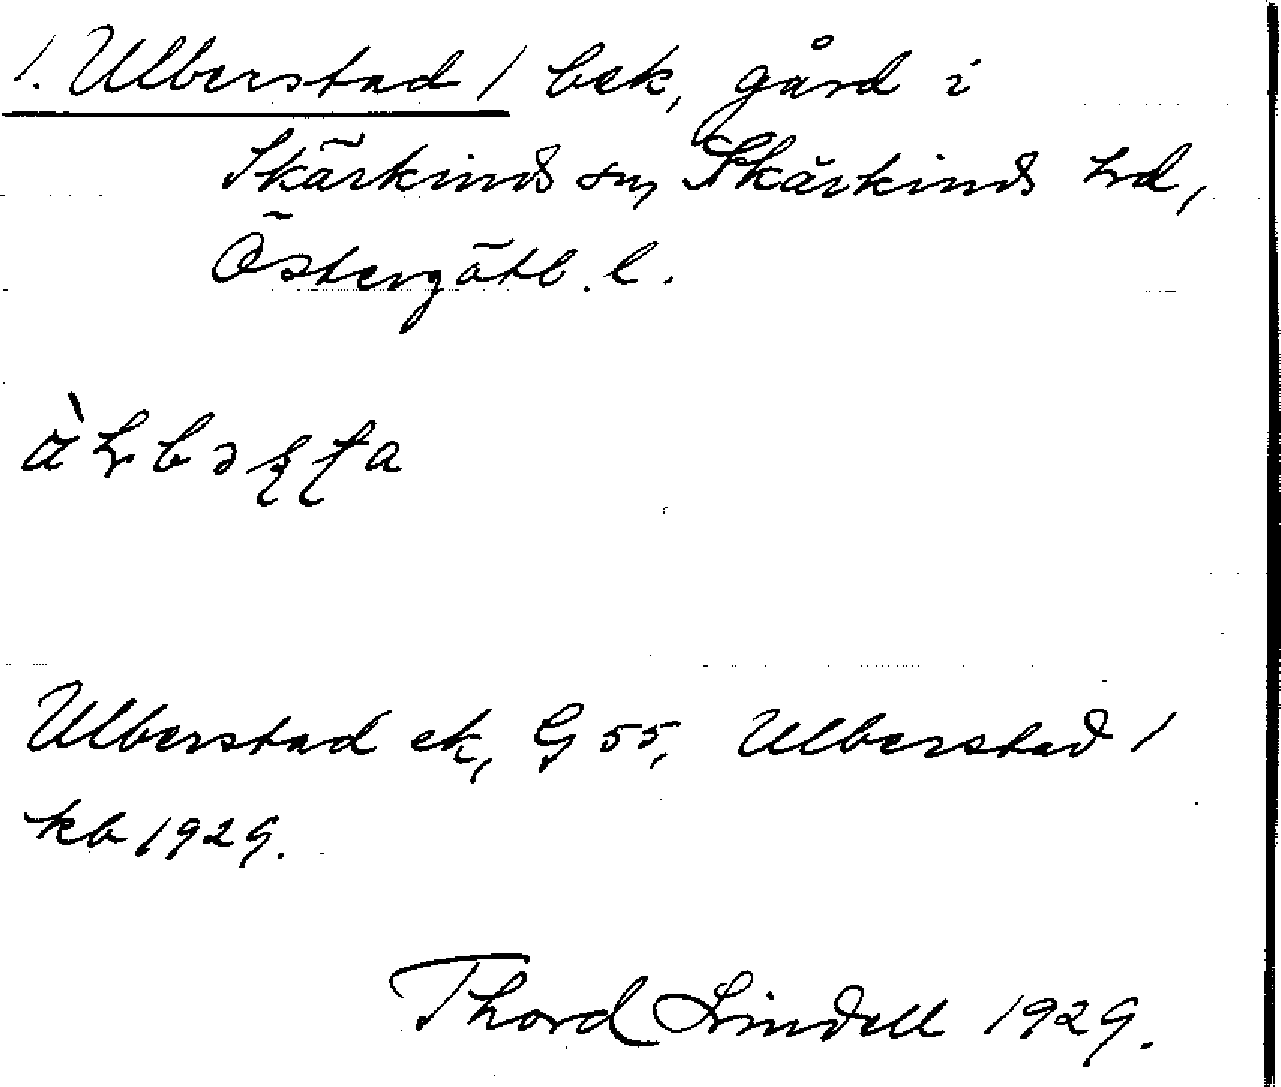 1. Ulberstad 1 bek, gård i
Skärkinds sn, Skärkinds hd,
Östergötl. l.
Ulberstad ek, G 55, Ulberstad 1
kb 1929.
Thord Lindell 1929.